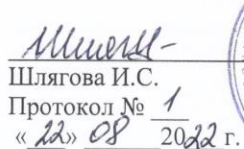 Шлягова И.С.
Протокол № 1
« 22» 08 2022 г.